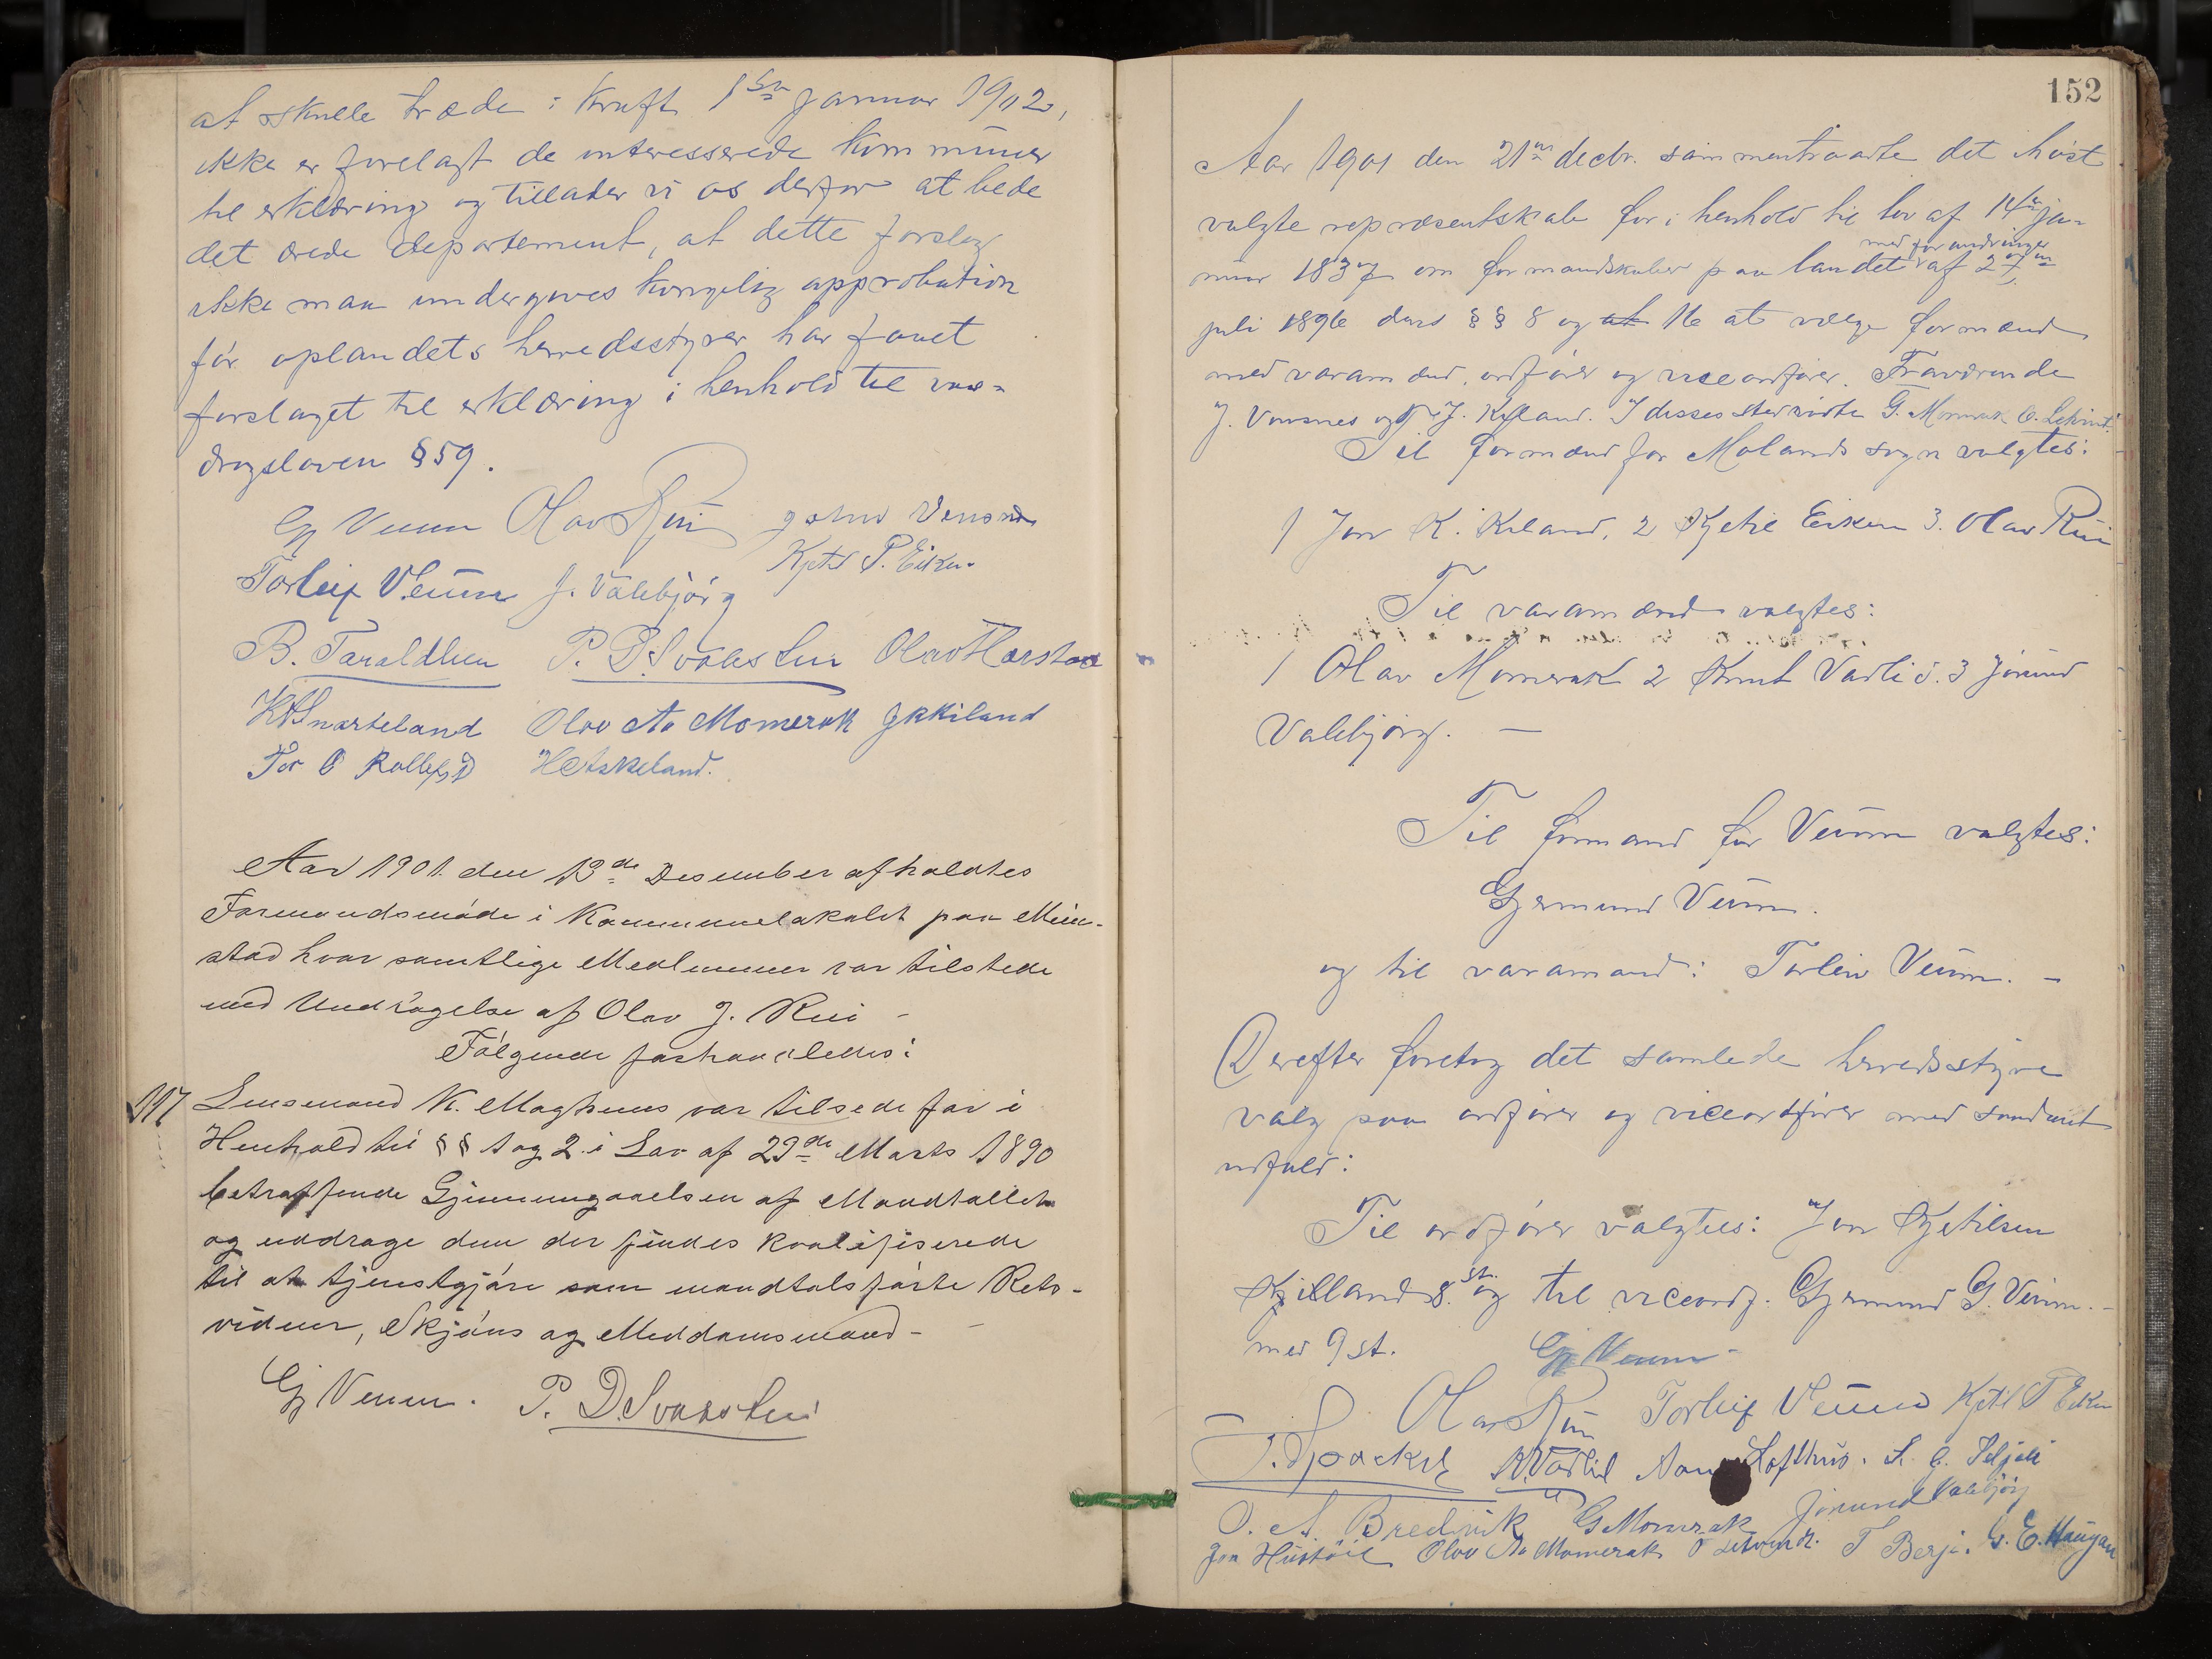 at skulle træde i kraft 1ste januar 1902,
ikke er forelagt de interesserede kommuner
til erklæring og tillader vi os derfor at bede
det ærede departement, at dette forslag
ikke maa undergives kongelig approbation
før oplandets herredsstyrer har faaet
forslaget til erklæring i henhold til vas-
dragsloven § 59.
Gj Veum Olav Rui John Vensnes
Torleif Veum J. Valebjørg Kjetil T. Eiken
B. Taraldlien P. D. Svalestuu Olav Harstad
K H Snarteland Olav Aa Momrak J K Kiland
Tor O Rollefs H Askeland.
Aar 1901 den 13de Desember afholdtes
Formandsmøde i Kommunelokalet paa Mun-
stad hvor samtlige Medlemmer var tilstede
med Undtagelse af Olav J. Rui -
Følgende forhandledes:
117 Lensmand K. Moghuus var tilstede for i
Henhold til §§ 1 og 2 i Lov af 29de Marts 1890
betræffende Gjennemgaaelsen af Mandtallet
og uddrage dem der findes kvalifiserede
til at tjenestgjøre som mandtalsførte Rets-
vidner, Skjøns og Meddomsmænd -
Gj Veum. P. D. Svalestuu
152
Aar 1901 den 21de decbr. sammentraadte det høst
valgte repræsentskab for i henhold til lov af 14de ja-
nuar 1837 om formandskaber paa landet med forandringer af 27de
juli 1896 dens §§ 8 og at 16 at vælge formænd
med varamænd, ordfører og viceordfører. Fraværende
J. Vensnes og T. J. Kyland. I disses sted mødte G. Momrak O.
Til formænd for Molands sogn valgtes:
1 Jon K. Kiland, 2 Kjetil Eiken 3. Olav Rui
Til varamænd valgtes:
1 Olav Momrak 2 Knut Vadlid. 3 Jørund
Valebjørg. —
Til formand for Veum valgtes:
Gjermund Veum.
og til varamand: Torleiv Veum. -
Derefter foretog det samlede herredsstyre
valg paa ordfører og viceordfører med saadant
udfald:
Til ordfører valgtes: Jon Kjetilsen
Killand 8 st. og til viceordf. Gjermund G. Veum. -
med 9 st. Gj Veum -
Olav Rui Torleif Veum Kjetil T Eiken
K. Vadlid Lofthus.
O. A. Bredvik G Momrak Jørund Valebjørg
Jon Hustøil Olav Aa Momrak T Berge. G. E. Haugan